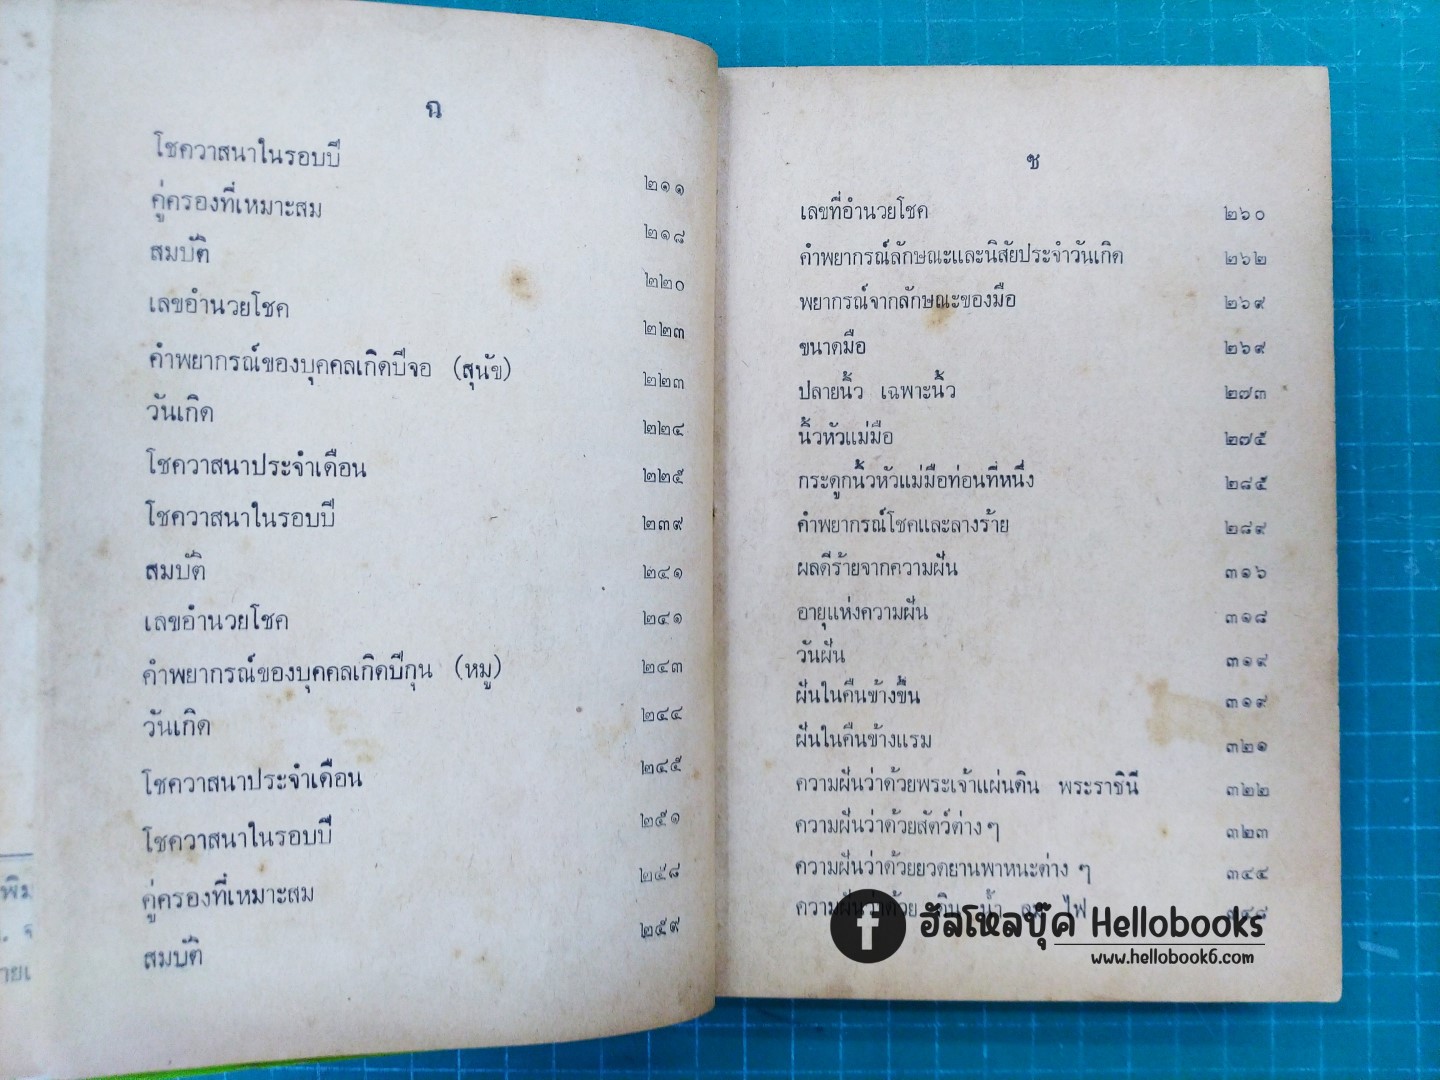 ฉ
โชควาสนาในรอบปี ๒๑๑
คู่ครองที่เหมาะสม ๒๑๘
สมบัติ ๒๒๐
เลขอำนวยโชค ๒๒๓
คำพยากรณ์ของบุคคลเกิดปีจอ (สุนัข) ๒๒๓
วันเกิด ๒๒๔
โชควาสนาประจำเดือน ๒๒๕
โชควาสนาในรอบปี ๒๓๙
สมบัติ ๒๔๑
เลขอำนวยโชค ๒๔๑
คำพยากรณ์ของบุคคลเกิดปีกุน (หมู) ๒๔๓
วันเกิด ๒๔๔
โชควาสนาประจำเดือน ๒๔๕
โชควาสนาในรอบปี ๒๕๑
คู่ครองที่เหมาะสม ๒๕๘
สมบัติ ๒๕๙
ช
เลขที่อำนวยโชค ๒๖๐
คำพยากรณ์ลักษณะและนิสัยประจำวันเกิด ๒๖๒
พยากรณ์จากลักษณะของมือ ๒๖๙
ขนาดมือ ๒๖๙
ปลายนิ้ว เฉพาะนิ้ว ๒๗๓
นิ้วหัวแม่มือ ๒๗๕
กระดูกนิ้วหัวแม่มือท่อนที่หนึ่ง ๒๘๕
คำพยากรณ์โชคและลางร้าย ๒๘๙
ผลดีร้ายจากความฝัน ๓๑๖
อายุแห่งความฝัน ๓๑๘
วันฝัน ๓๑๙
ฝันในคืนข้างขึ้น ๓๑๙
ฝันในคืนข้างแรม ๓๒๑
ความฝันว่าด้วยพระเจ้าแผ่นดิน พระราชินี ๓๒๒
ความฝันว่าด้วยสัตว์ต่างๆ ๓๒๓
ความฝันว่าด้วยยวดยานพาหนะต่าง ๆ ๓๔๕
ความฝันว่าด้วย ดิน น้ำ ลม ไฟ
ฮัลโหลบุ๊ค Hellobooks
www.hellobook6.com